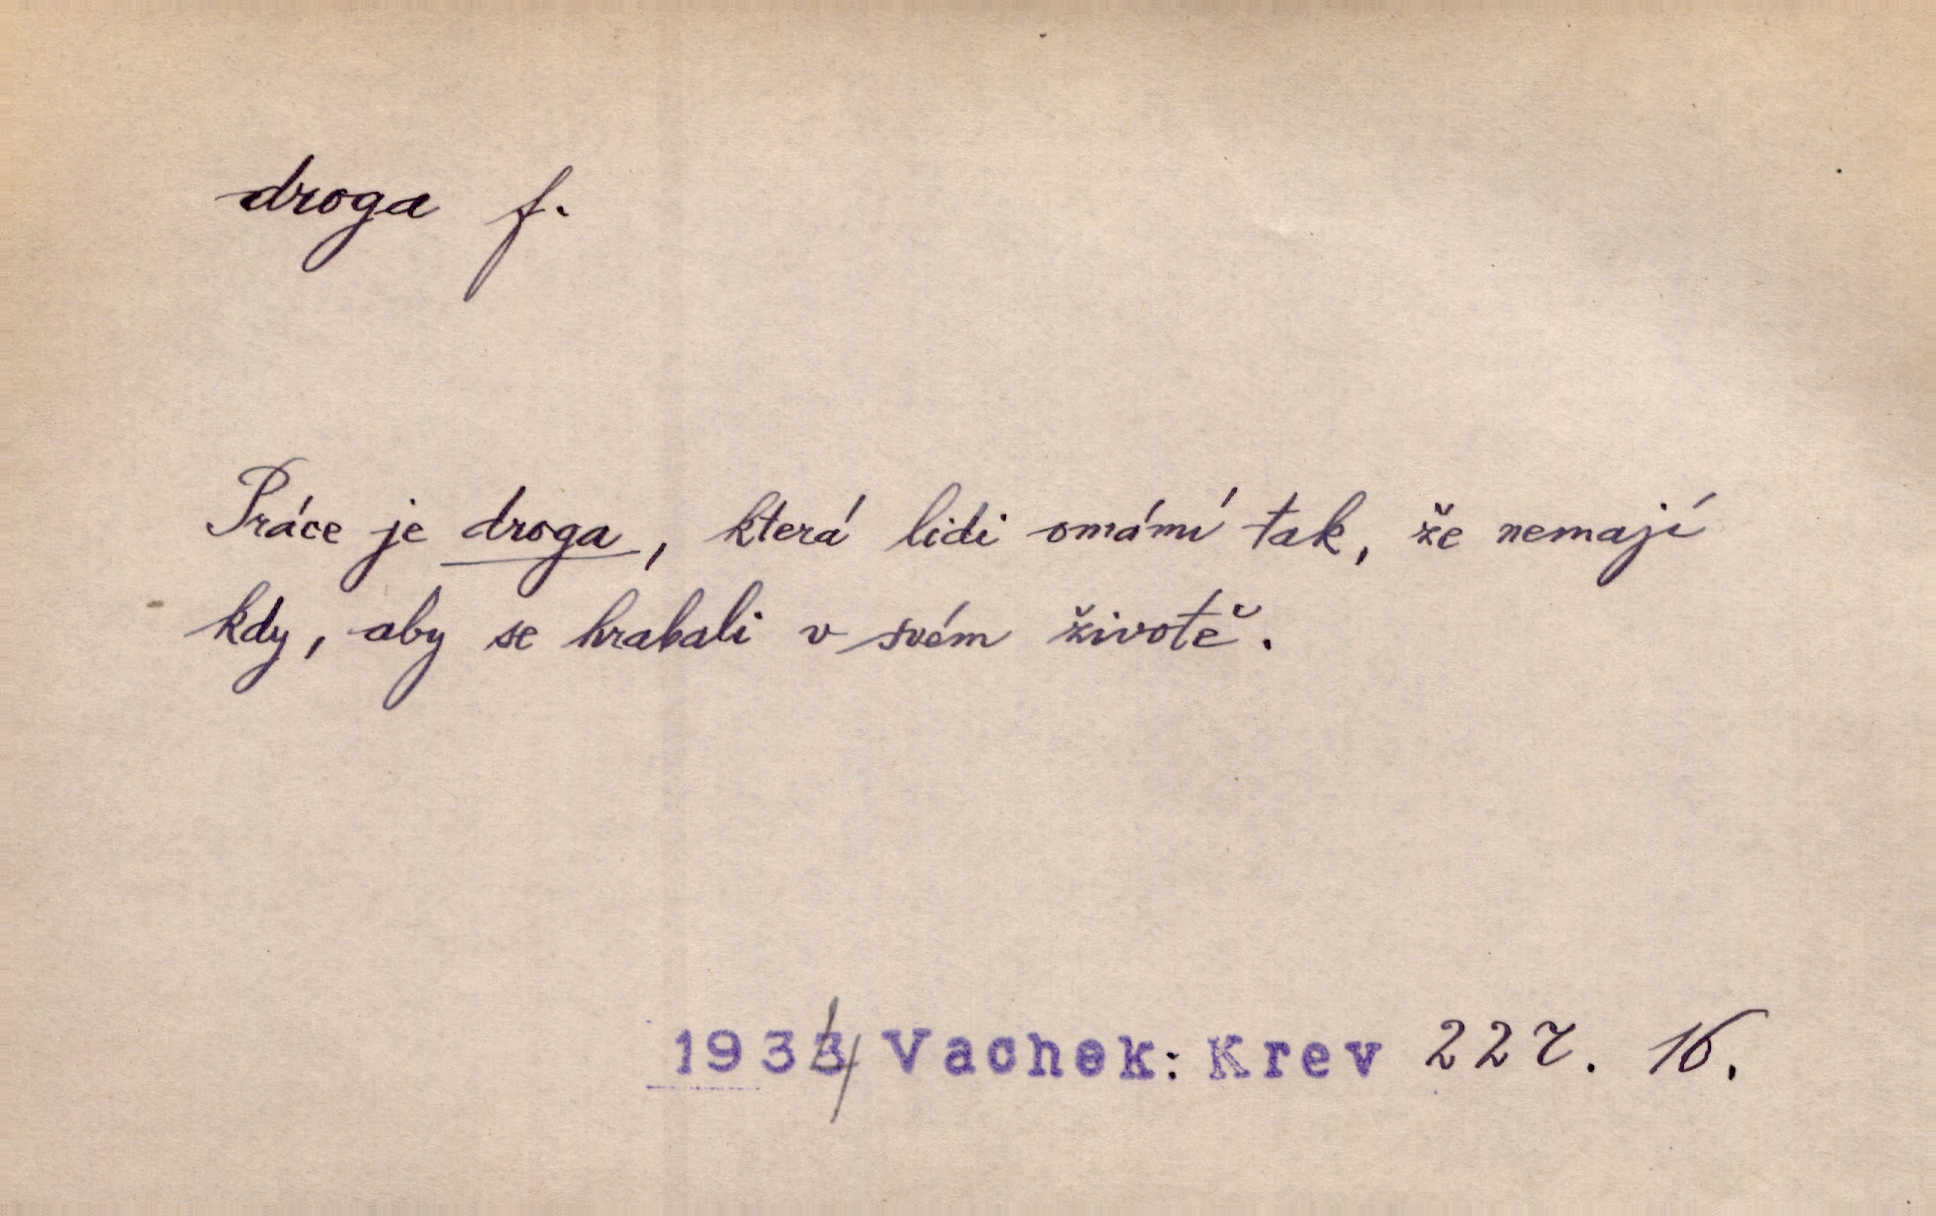 droga f.
Práce je droga, která lidi omámí tak, že nemají
kdy, aby se hrabali v svém životě.
1934 Vachek: Krev 227. 16.